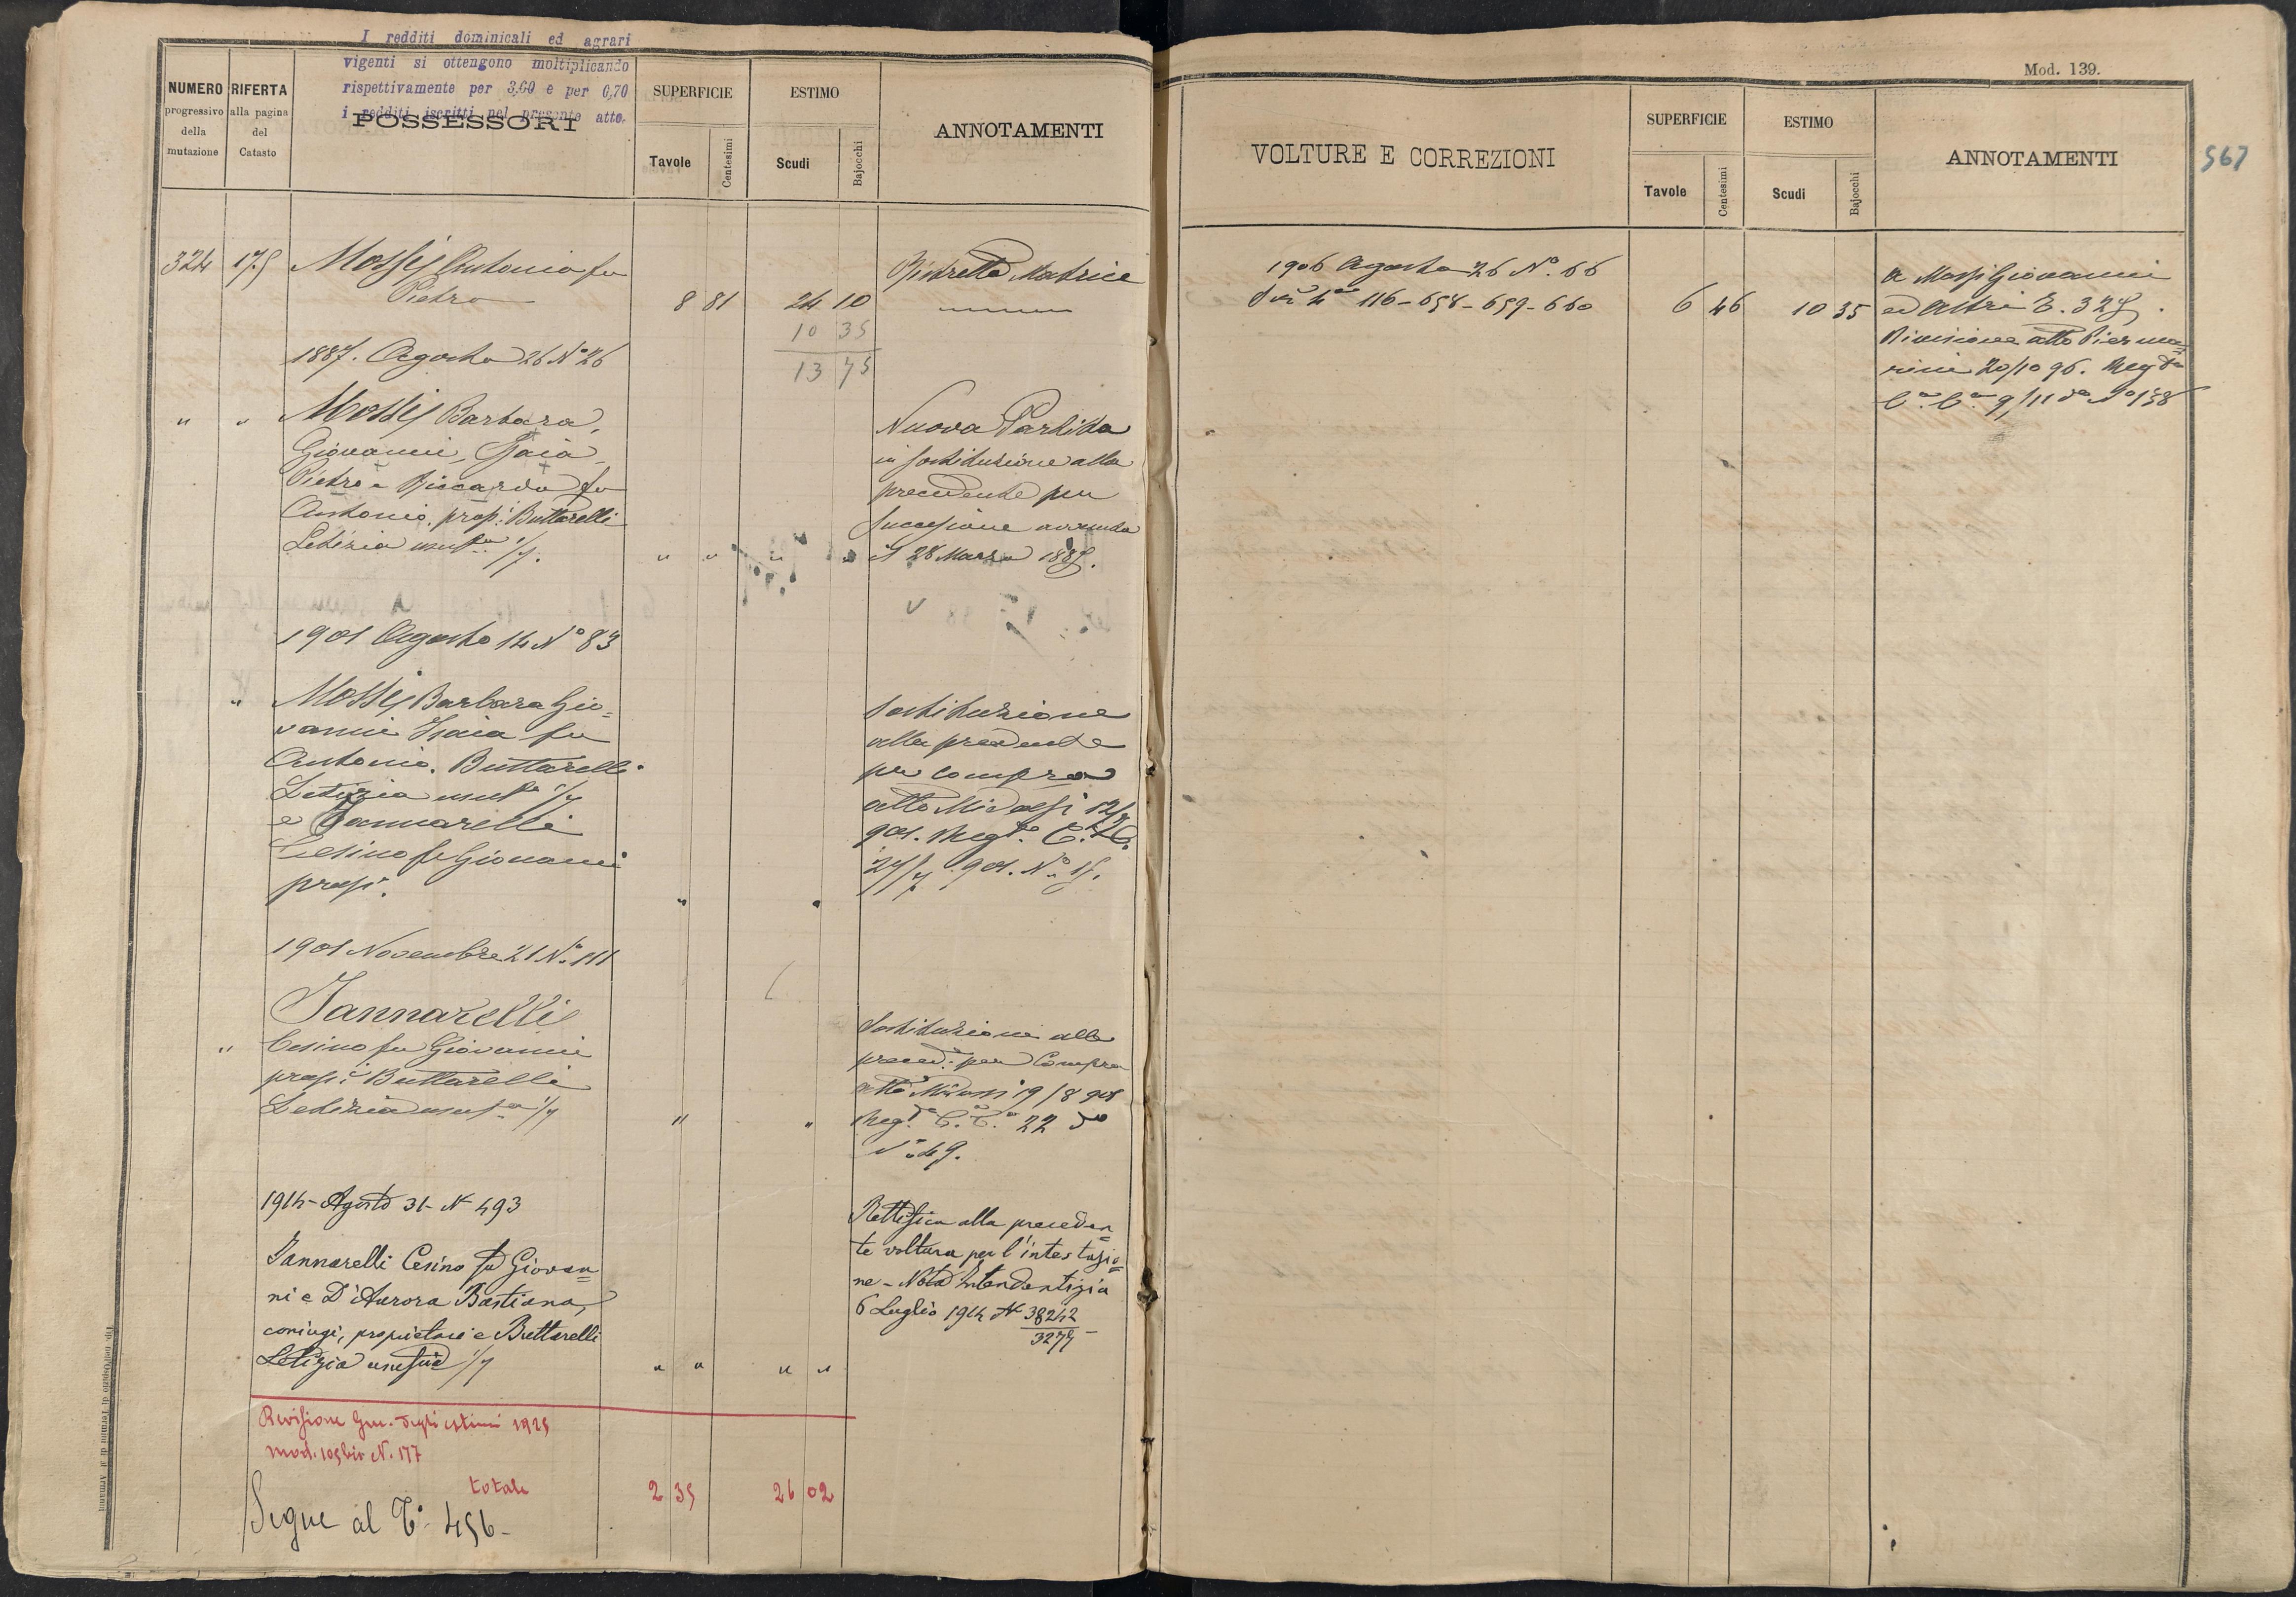 I redditi dominicali ed agrari
vigenti si ottengono moltiplicando
rispettivamente per 3,60 e per 0,70
i redditi iscritti nel presente atto.
NUMERO
progressivo
della
mutazione
RIFERTA
alla pagina
del
Catasto
POSSESSORI
SUPERFICIE
Tavole
Centesimi
ESTIMO
Scudi
Bajocchi
ANNOTAMENTI
324 175 Antonio fu
Pietro
8 81 24 10
10 35
13 75
Ristretto Matrice
1887. Agosto 26 Nº 26
" " Barbara,
Giovanni, Isaia
Pietro e Riccardo fu
Antonio, prop.i Buttarelli
Letizia 1/7.
" " " "
Nuova Partita
in sostituzione alla
precedente per
successione avvenuta
il 28 Marzo
1901 Agosto 14 Nº 83
" Barbara Gio=
vanni Isaia fu
Antonio. Buttarelli
Letizia 1/7
e Iannarelli
Cesino fu Giovanni
prop.i
Sostituzione
alla precedente
per compra
atto
901. Reg.to
901. Nº 15.
1901 Novembre 21 Nº 111
Iannarelli
" Cesino fu Giovanni
prop.i Buttarelli
Letizia 1/7
" "
Sostituzione alla
preced.e per Compra
atto 19/8 901
Reg.to 22 do
Nº 49.
1914 - Agosto 31 - Nº 493
Iannarelli Cesino fu Giovan=
ni e D'Aurora Bastiana,
coniugi, proprietari e Buttarelli
Letizia 1/7
" " " "
Rettifica alla preceden=
te voltura per l'intestazio=
ne - Nota Intendentizia
6 Luglio 1914 Nº 38242
Revisione Gen. degli estimi 1925
mod. 105 bis N. 177
totale 2 35 26 02
Segue al
Mod. 139.
VOLTURE E CORREZIONI
SUPERFICIE
Tavole
Centesimi
ESTIMO
Scudi
Bajocchi
ANNOTAMENTI
567
1906 Agosto 26 Nº. 66
116 - 658 - 659 - 660 6 46 10 35
a Giovanni
ed altri
Divisione atto Pierma=
rini 20/10 96. Reg.to